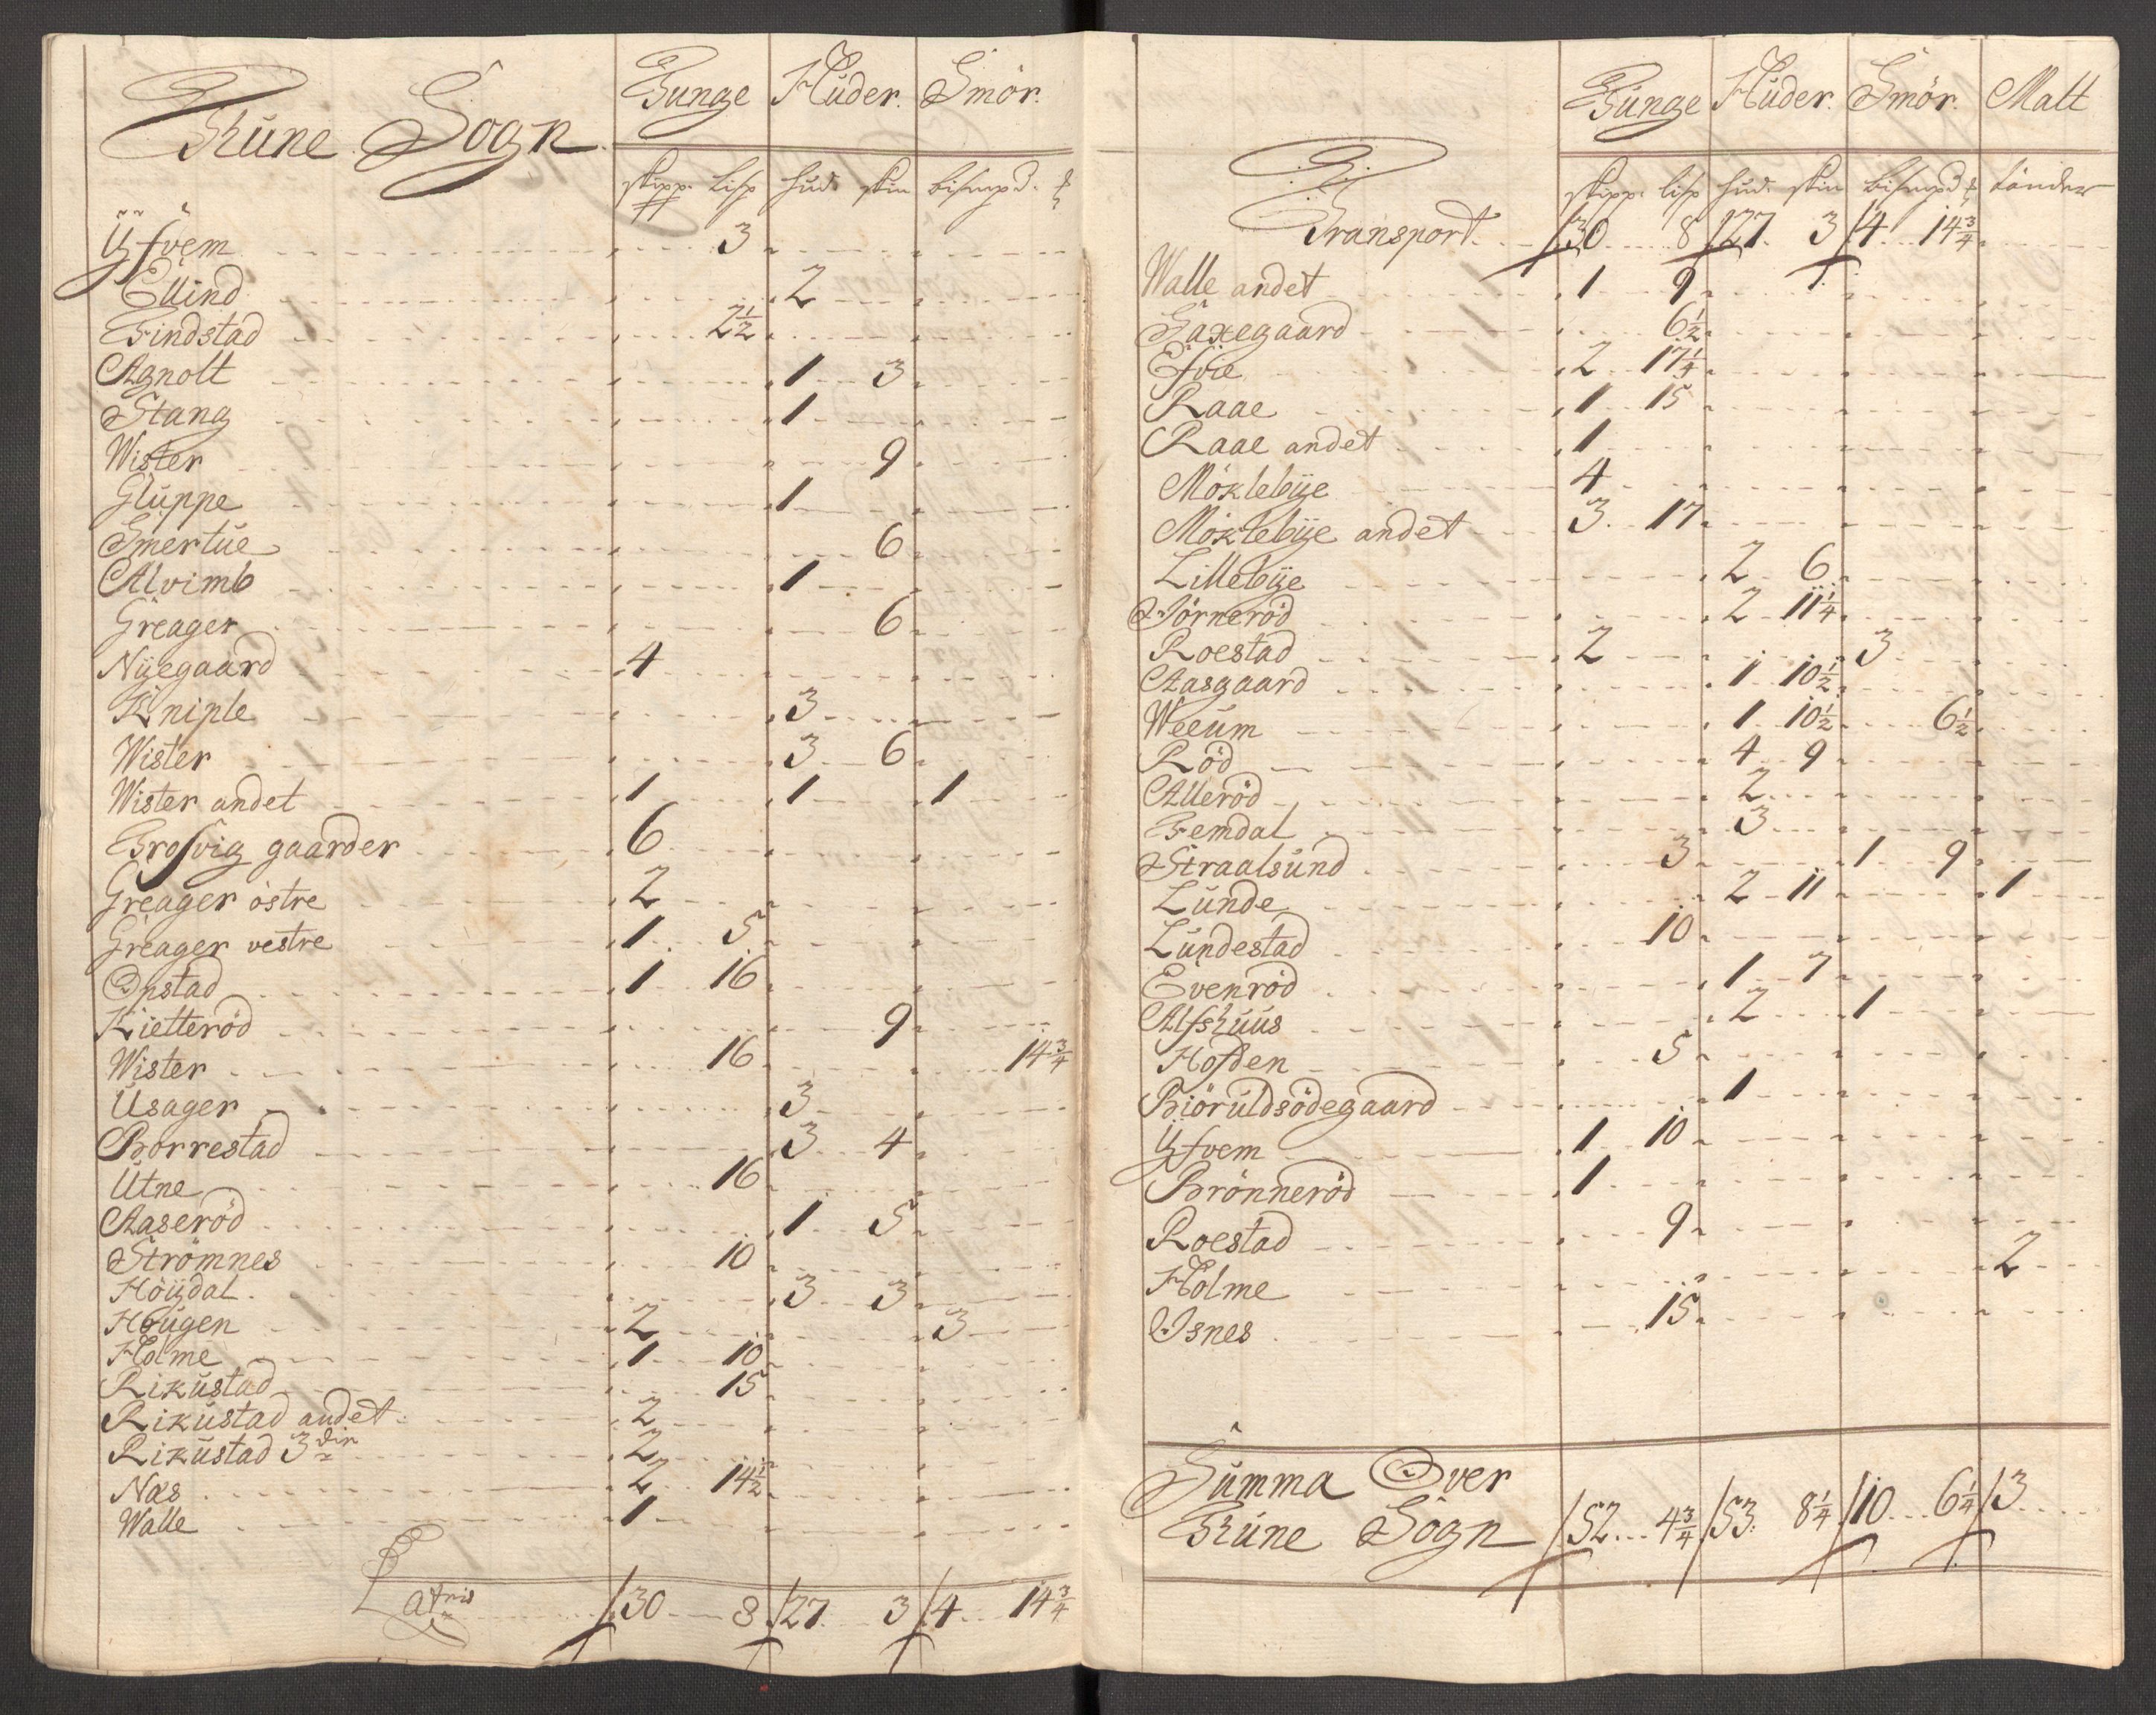 Thune Sogn. Tunge Huder. Smör.
skipp. lisp hud. skin bismpd. ℔
Ÿfvem 3
Ellind 2
Findstad 2½
Agnolt 1 3
Stang 1
Wister 9
Gluppe 1
Smertue 6
Alvimb 1
Greager 6
Nÿegaard 4
Kniple 3
Wister 3 6
Wister andet 1 1 1
Trosvig gaarder 6
Greager östre 2
Greager vestre 1 5
Opstad 1 16
Kietteröd 9
Wister 16 14¾
Usager 3
Borrestad 3 4
Utne 16
Aaseröd 1 5
Strömnes 10
Höÿdal 3 3
Hougen 2 3
Holme 1 10
Rikustad 15
Rikustad andet 2
Rikustad 3die 2
Næs 2 14½
Walle 1
Latris 30 8 27 3 4 14¾
Tunge Huder. Smör. Malt
skipp. lisp hud. skin bismpd ℔ tönder
Transport. 30 8 27 3 4 14¾
Walle andet 1 9
Saxegaard 6½
Efvie 2 17¼
Raae 1 15
Raae andet 1
Möklebÿe 4
Möklebÿe andet 3 17
Lillebÿe 2 6
Jörneröd 2 11¼
Roestad 2 3
Aasgaard 1 10½
Weeum 1 10½ 6½
Röd 4 9
Alleröd 2
Femdal 3
Straalsund 3 1 9
Lunde 2 11 1
Lundestad 10
Evenröd 1 7
Alfshuus 2 1
Hofden 5
Biöruldsödegaard 1
Ÿfvem 1 10
Brönneröd 1
Roestad 9
Holme 2
Isnes 15
Summa Over
Thune Sogn 52 4¾ 53 8¼ 10 6¼ 3